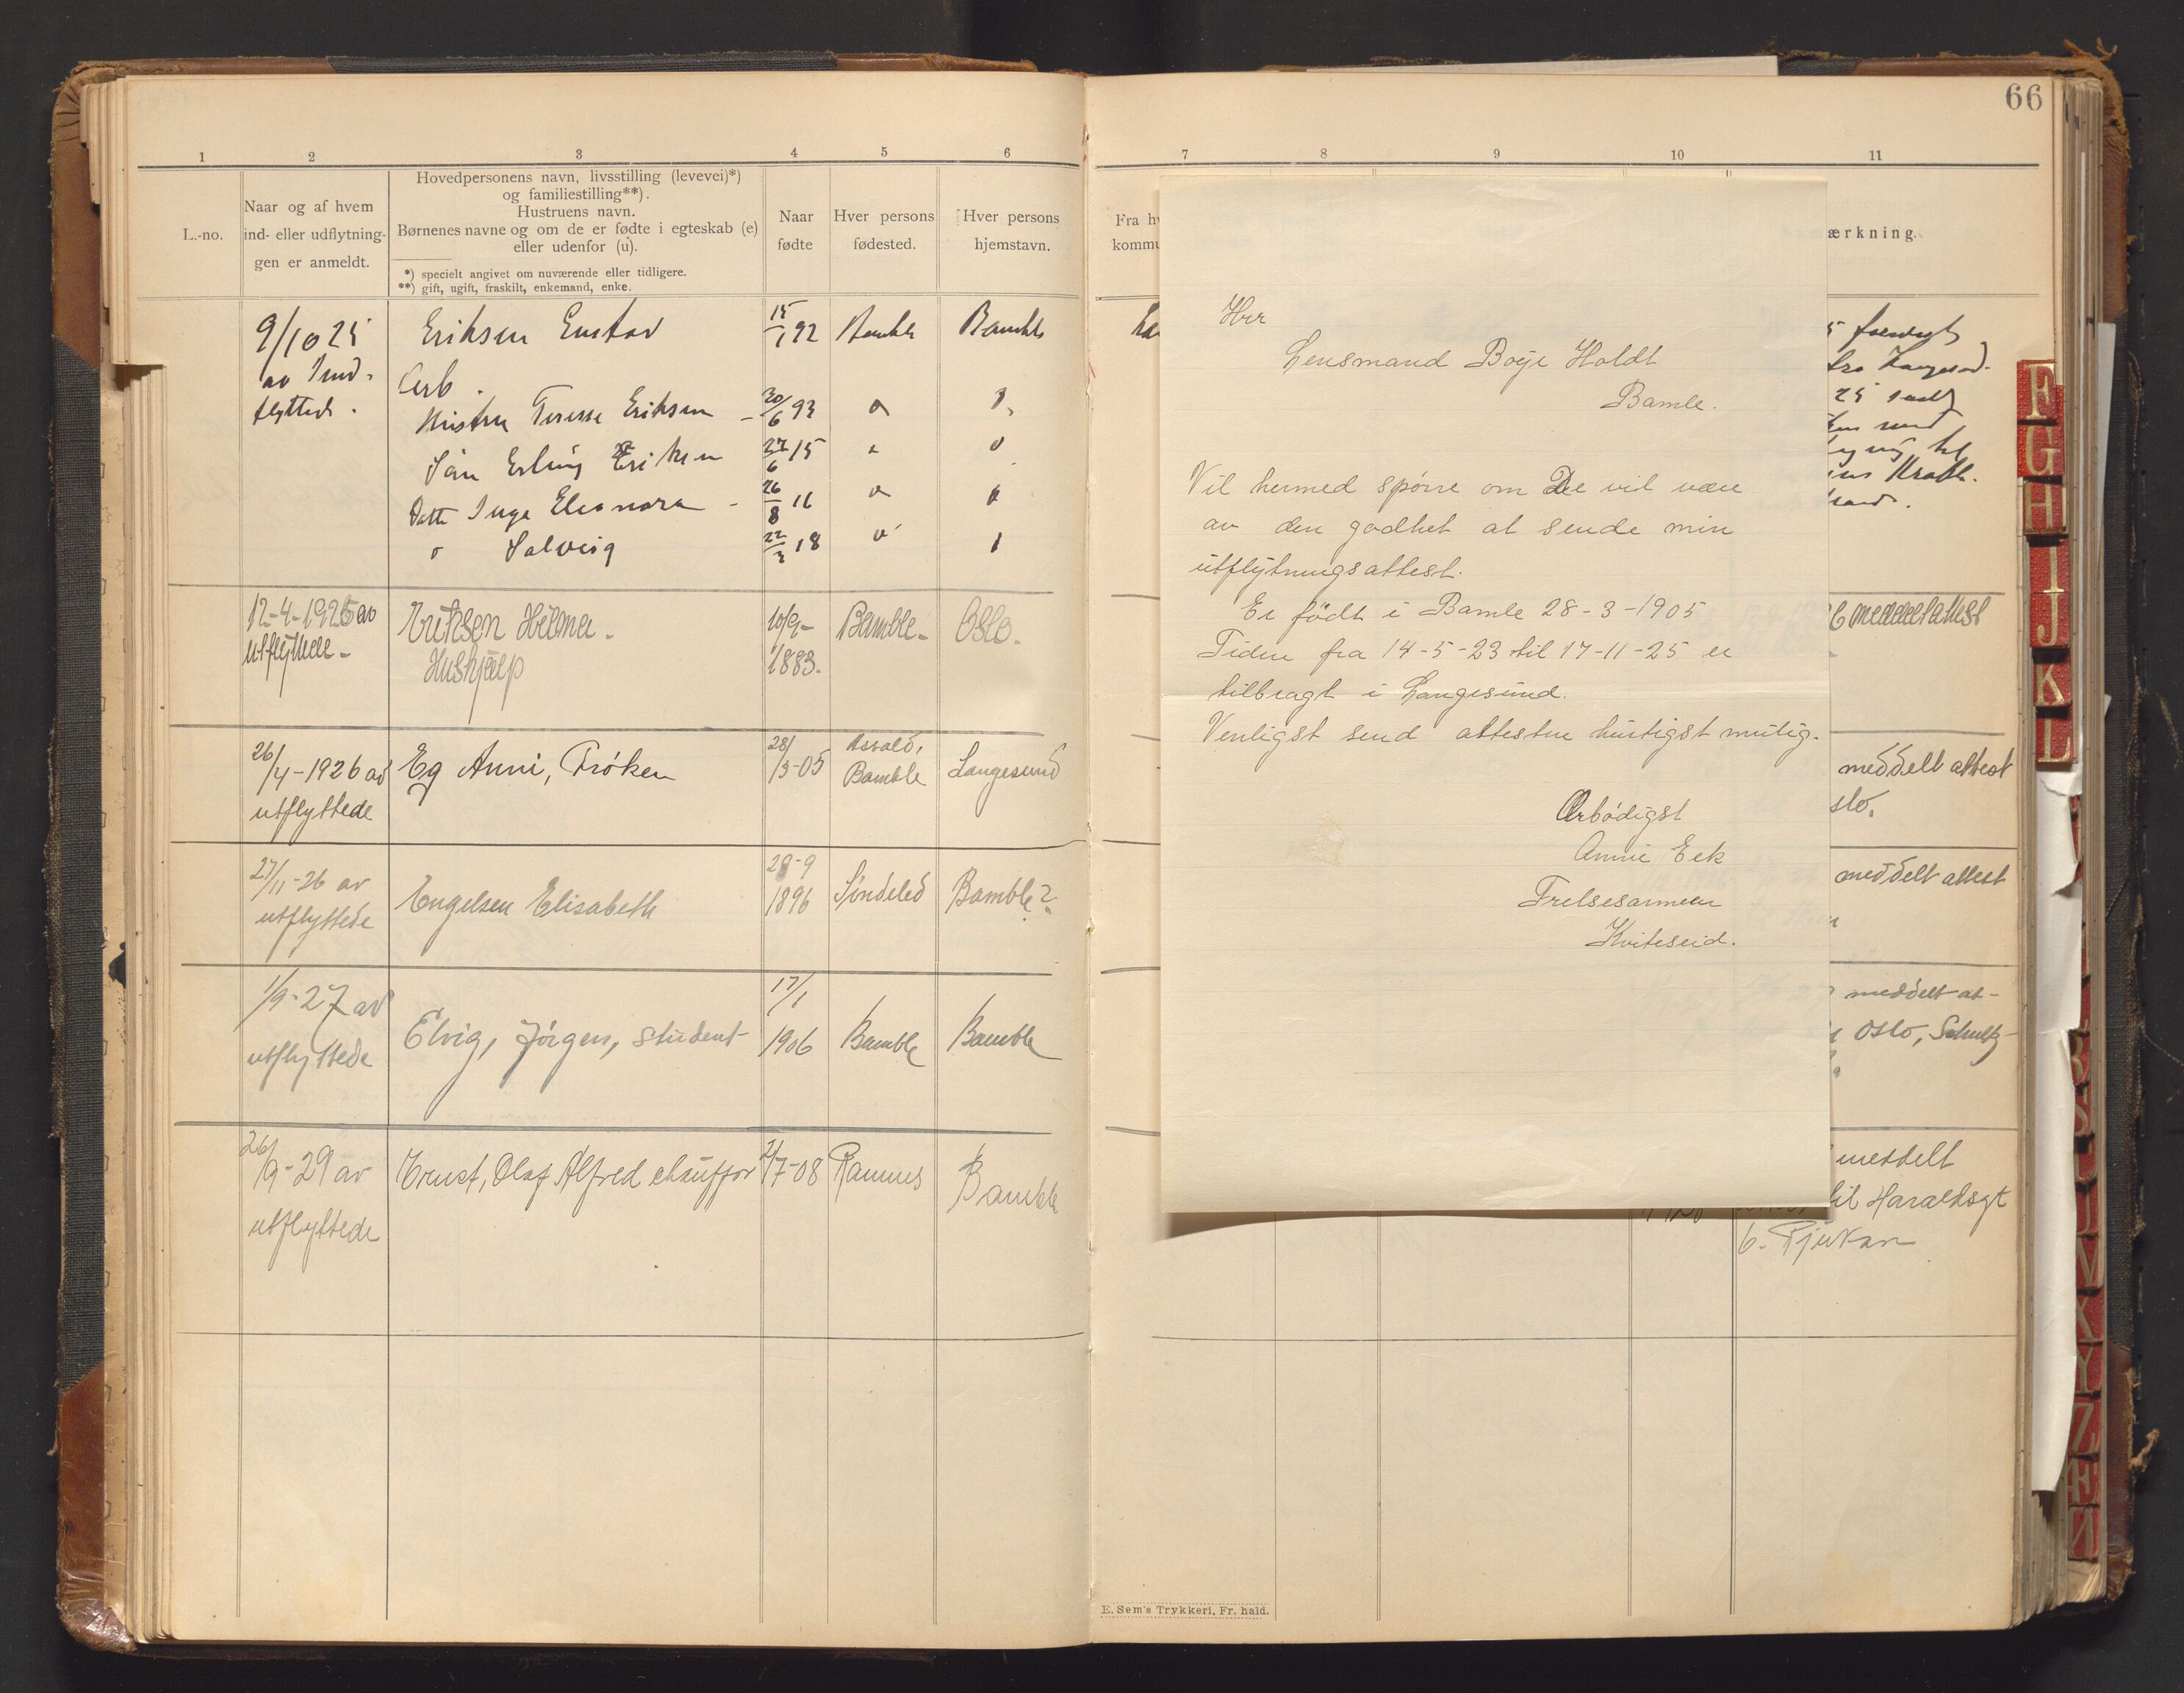 66
1 2 3 4 5 6
L.-no.
Naar og af hvem
ind- eller udflytnin-
gen er anmeldt.
Hovedpersonens navn, livsstilling (levevei)*)
og familiestilling**).
Hustruens navn.
Børnenes navne og om de er fødte i egteskab (e)
eller udenfor (u).
*) specielt angivet om nuværende eller tidligere.
**) gift, ugift, fraskilt, enkemand, enke.
Naar
fødte
Hver persons
fødested.
Hver persons
hjemstavn.
9/10 25 Eriksen Gustav 15/1 92 Bamble Bamble
av Ind- Arb.
flyttede. Hustru Terese Eriksen - 20/6 93 " "
Sön Erling Eriksen 27/6 15 " "
Datt Inga Eleonora - 26/8 16 " "
" Solveig 22/3 18 " "
12-4-1926 av Eriksen Helma - 10/9- Bamble - Oslo.
utflyttede - Hushjælp 1883.
26/4-1926 av Eg Anni, Frøken 28/3-05 Asvald, Bamble Langesund
utflyttede
27/11-26 av Engelsen Elisabeth 28-9 1896 Söndeled Bamble?
utflyttede
1/9-27 av Elvig, Jörgen, student 17/1 1906 Bamble Bamble
utflyttede
26/9-29 av Ernst, Olaf Alfred chauffør 2/7-08 Ramnes Bamble
utflyttede
7 8 9 10 11
Fra hv
kommu
ærkning.
fra Langesund-
25 sendt
meddelt attest
meddelt attest
slo.
meddelt attest
meddelt at-
Oslo, Schultz-
meddelt
til Haraldsgt
6. Rjukan
Herr
Lensmand Boye Holdt
Bamle.
Vil hermed spörre om De vil være
av den godhet at sende min
utflytningsattest.
Er födt i Bamle 28-3-1905
Tiden fra 14-5-23 til 17-11-25 er
tilbragt i Langesund.
Venligst send attesten hurtigst mulig.
Ærbödigst
Annie Eek
Frelsesarmeen
Kviteseid.
E. Sem's Trykkeri, Fr. hald.
F
G
H
I
J
K
L
V
X
Y
Z
Æ